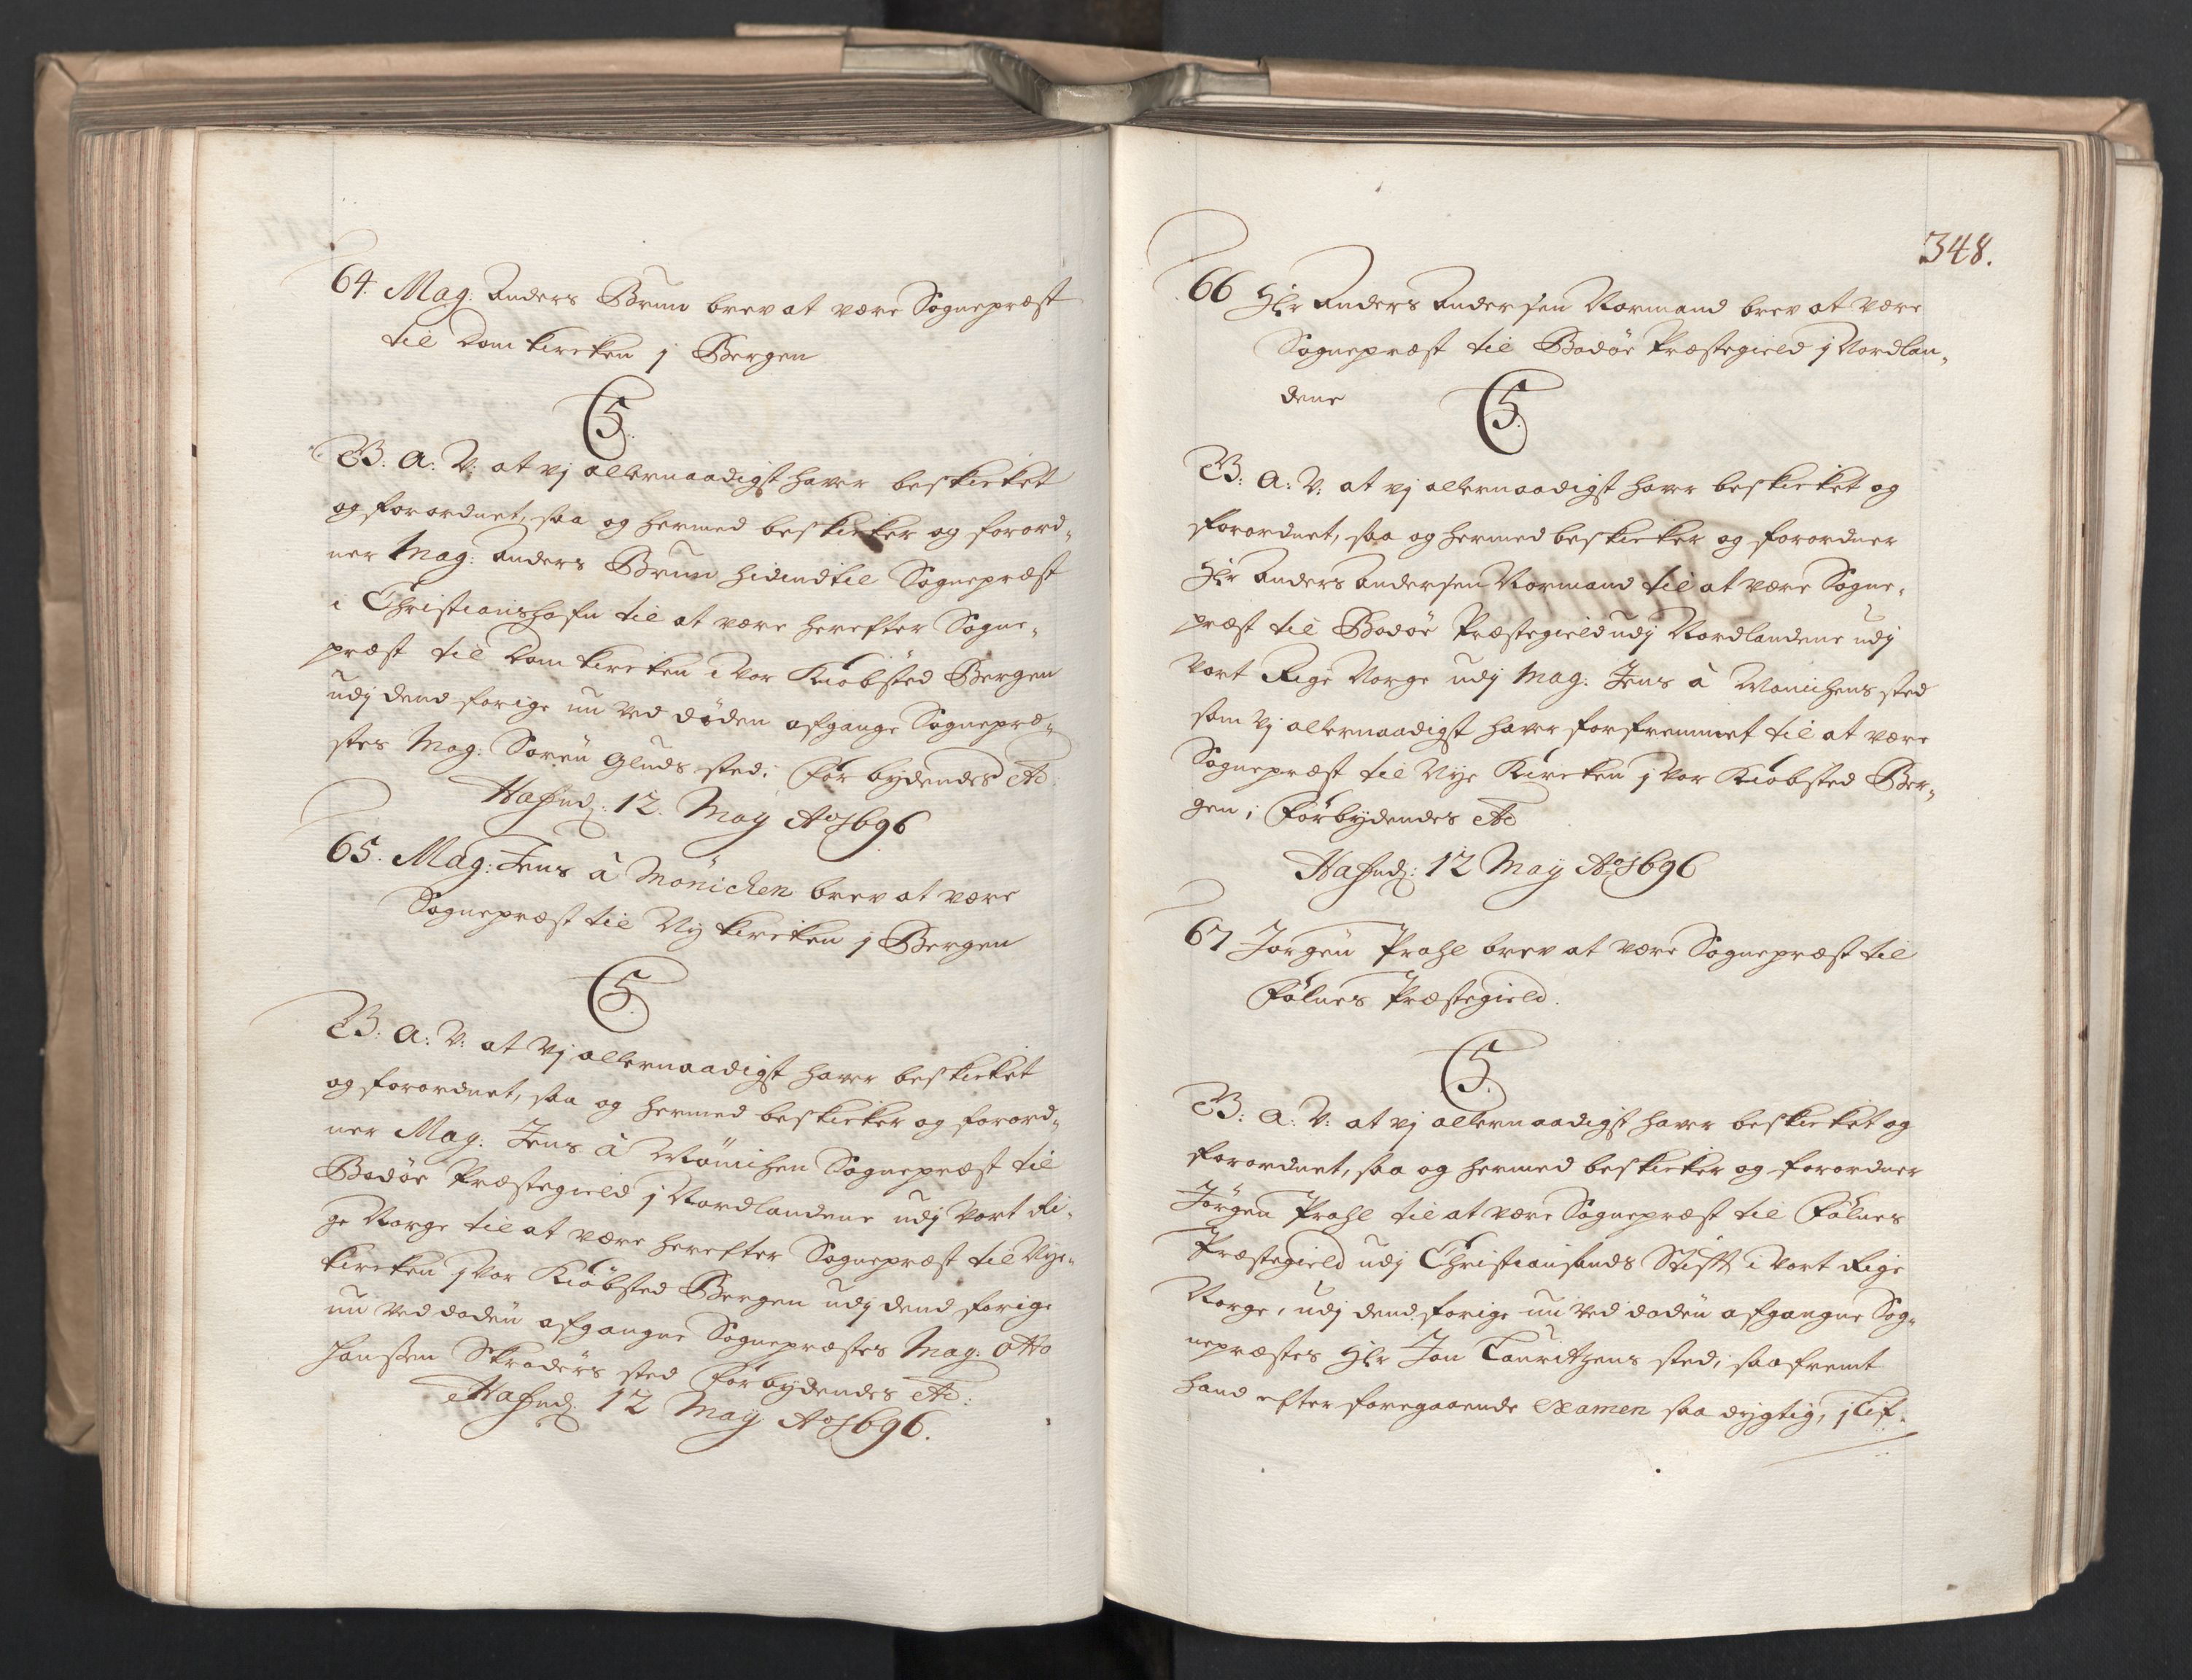 64. Mag: Anders Brun brev at være Sognepræst
til Domkircken j Bergen
C5.
B. A: V: at vj allernaadigst haver beskicket
og forordnet, saa og hermed beskicker og forord-
ner Mag: Anders Brun hidindtil Sognepræst
i Christianshafn til at være herefter Sogne-
præst til Domkircken i vor Kiøbsted Bergen
udj dend forige nu ved døden afgange Sognepræ-
stes Mag: Søren Gluds sted; Forbydendes etc
Hafniæ: 12. May Ao 1696
65. Mag: Jens à Mönichen brev at være
Sognepræst til Ny kircken j Bergen
C5.
B. A: V: at Vj allernaadigst haver beskicket
og forordnet, saa og hermed beskicker og forord-
ner Mag: Jens à Mönichen Sognepræst til
Bodøe Præstegield j Nordlandene udj vort Ri-
ge Norge til at være herefter Sognepræst til Nye-
kircken j vor Kiøbsted Bergen udj dend forige
nu ved døden afgangne Sognepræstes Mag. Otto
Hanssen Skrøders sted Forbydendes etc:
Hafniæ: 12 May Ao 1696.
348.
66 Hr Anders Andersen Normand brev at være
Sognepræst til Bodøe Præstegield j Nordlan-
dene
C5.
B: A: V: at vj allernaadigst haver beskicket og
forordnet, saa og hermed beskicker og forordner
Hr Anders Andersen Normand til at være Sogne-
præst til Bodøe Præstegield udj Nordlandene udj
vort Rige Norge udj Mag: Jens à Mönichens sted
som vj allernaadigst haver forfremmet til at være
Sognepræst til Nye Kircken j vor Kiøbsted Ber-
gen; Forbydendes etc
Hafniæ: 12 May Ao 1696
67 Jørgen Prahl brev at være Sognepræst til
Følnes Præstegield.
C5.
B: A: V: at vj allernaadigst haver beskicket og
forordnet, saa og hermed beskicker og forordner
Jørgen Prahl til at være Sognepræst til Følnes
Præstegield udj Christiansands Stift i vort Rige
Norge, udj dend forige nu ved døden afgangne Sog-
nepræstes Hr Jon Lauritzens sted, saafremt
hand efter foregaaende Examen saa dygtig, j Lif-